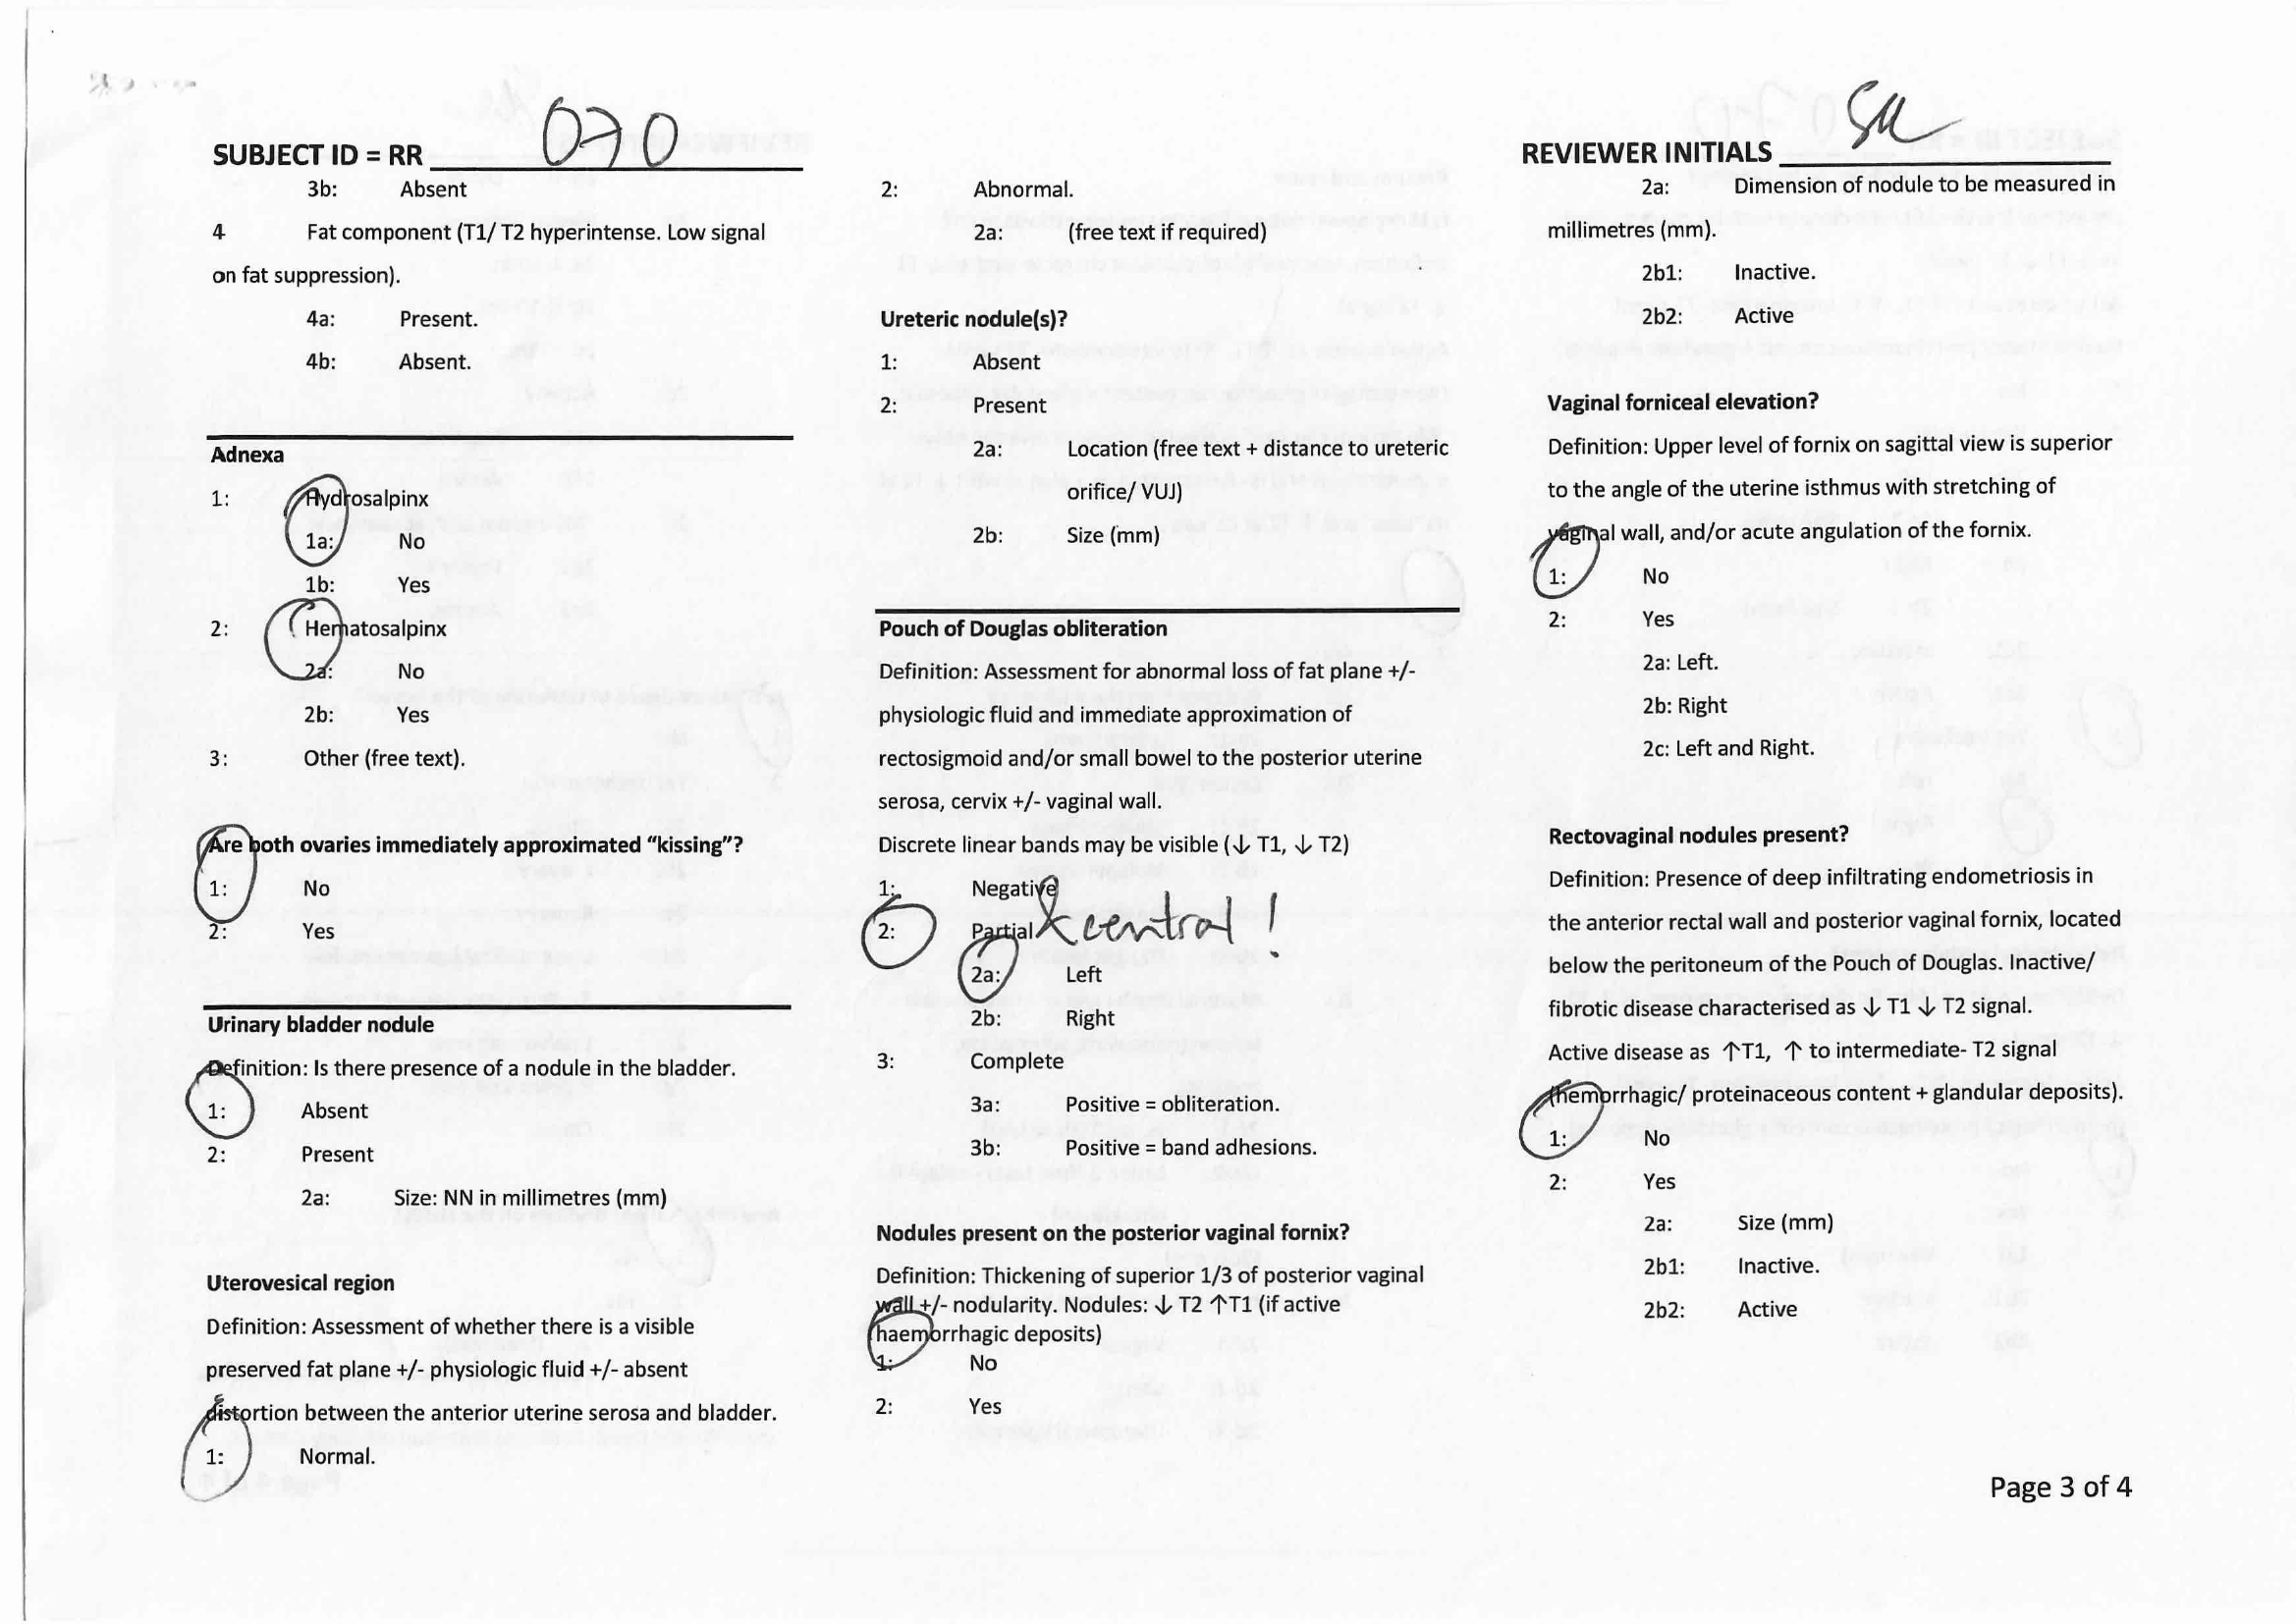 SUBJECT ID = RR 070
3b: Absent
4 Fat component (T1/ T2 hyperintense. Low signal
on fat suppression).
4a: Present.
4b: Absent.
Adnexa
1: Hydrosalpinx
1a: No
1b: Yes
2: Hematosalpinx
2a: No
2b: Yes
3: Other (free text).
Are both ovaries immediately approximated “kissing”?
1: No
2: Yes
Urinary bladder nodule
Definition: Is there presence of a nodule in the bladder.
1: Absent
2: Present
2a: Size: NN in millimetres (mm)
Uterovesical region
Definition: Assessment of whether there is a visible
preserved fat plane +/- physiologic fluid +/- absent
distortion between the anterior uterine serosa and bladder.
1: Normal.
2: Abnormal.
2a: (free text if required)
Ureteric nodule(s)?
1: Absent
2: Present
2a: Location (free text + distance to ureteric
orifice/ VUJ)
2b: Size (mm)
Pouch of Douglas obliteration
Definition: Assessment for abnormal loss of fat plane +/-
physiologic fluid and immediate approximation of
rectosigmoid and/or small bowel to the posterior uterine
serosa, cervix +/- vaginal wall.
Discrete linear bands may be visible (↓ T1, ↓ T2)
1: Negative
2: Partial & central !
2a: Left
2b: Right
3: Complete
3a: Positive = obliteration.
3b: Positive = band adhesions.
Nodules present on the posterior vaginal fornix?
Definition: Thickening of superior 1/3 of posterior vaginal
wall +/- nodularity. Nodules: ↓ T2 ↑T1 (if active
haemorrhagic deposits)
1: No
2: Yes
REVIEWER INITIALS SM
2a: Dimension of nodule to be measured in
millimetres (mm).
2b1: Inactive.
2b2: Active
Vaginal forniceal elevation?
Definition: Upper level of fornix on sagittal view is superior
to the angle of the uterine isthmus with stretching of
vaginal wall, and/or acute angulation of the fornix.
1: No
2: Yes
2a: Left.
2b: Right
2c: Left and Right.
Rectovaginal nodules present?
Definition: Presence of deep infiltrating endometriosis in
the anterior rectal wall and posterior vaginal fornix, located
below the peritoneum of the Pouch of Douglas. Inactive/
fibrotic disease characterised as ↓ T1 ↓ T2 signal.
Active disease as ↑T1, ↑ to intermediate- T2 signal
(hemorrhagic/ proteinaceous content + glandular deposits).
1: No
2: Yes
2a: Size (mm)
2b1: Inactive.
2b2: Active
Page 3 of 4